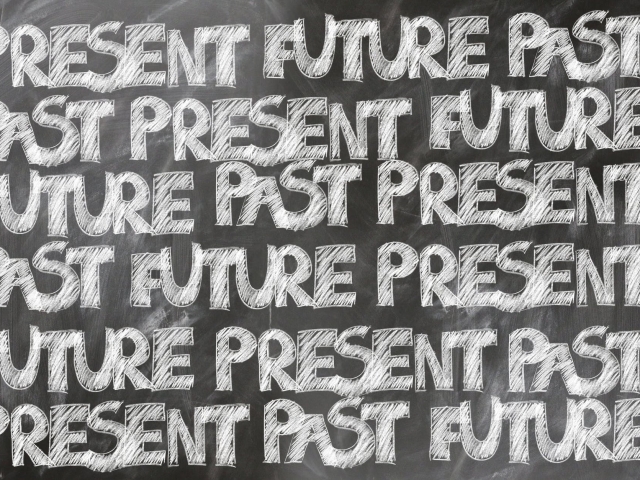 PRESENT FUTURE PAST
PAST PRESENT FUTURE
UTURE PAST PRESENT
PAST FUTURE PRESENT
UTURE PRESENT PAST
PRESENT PAST FUTURE